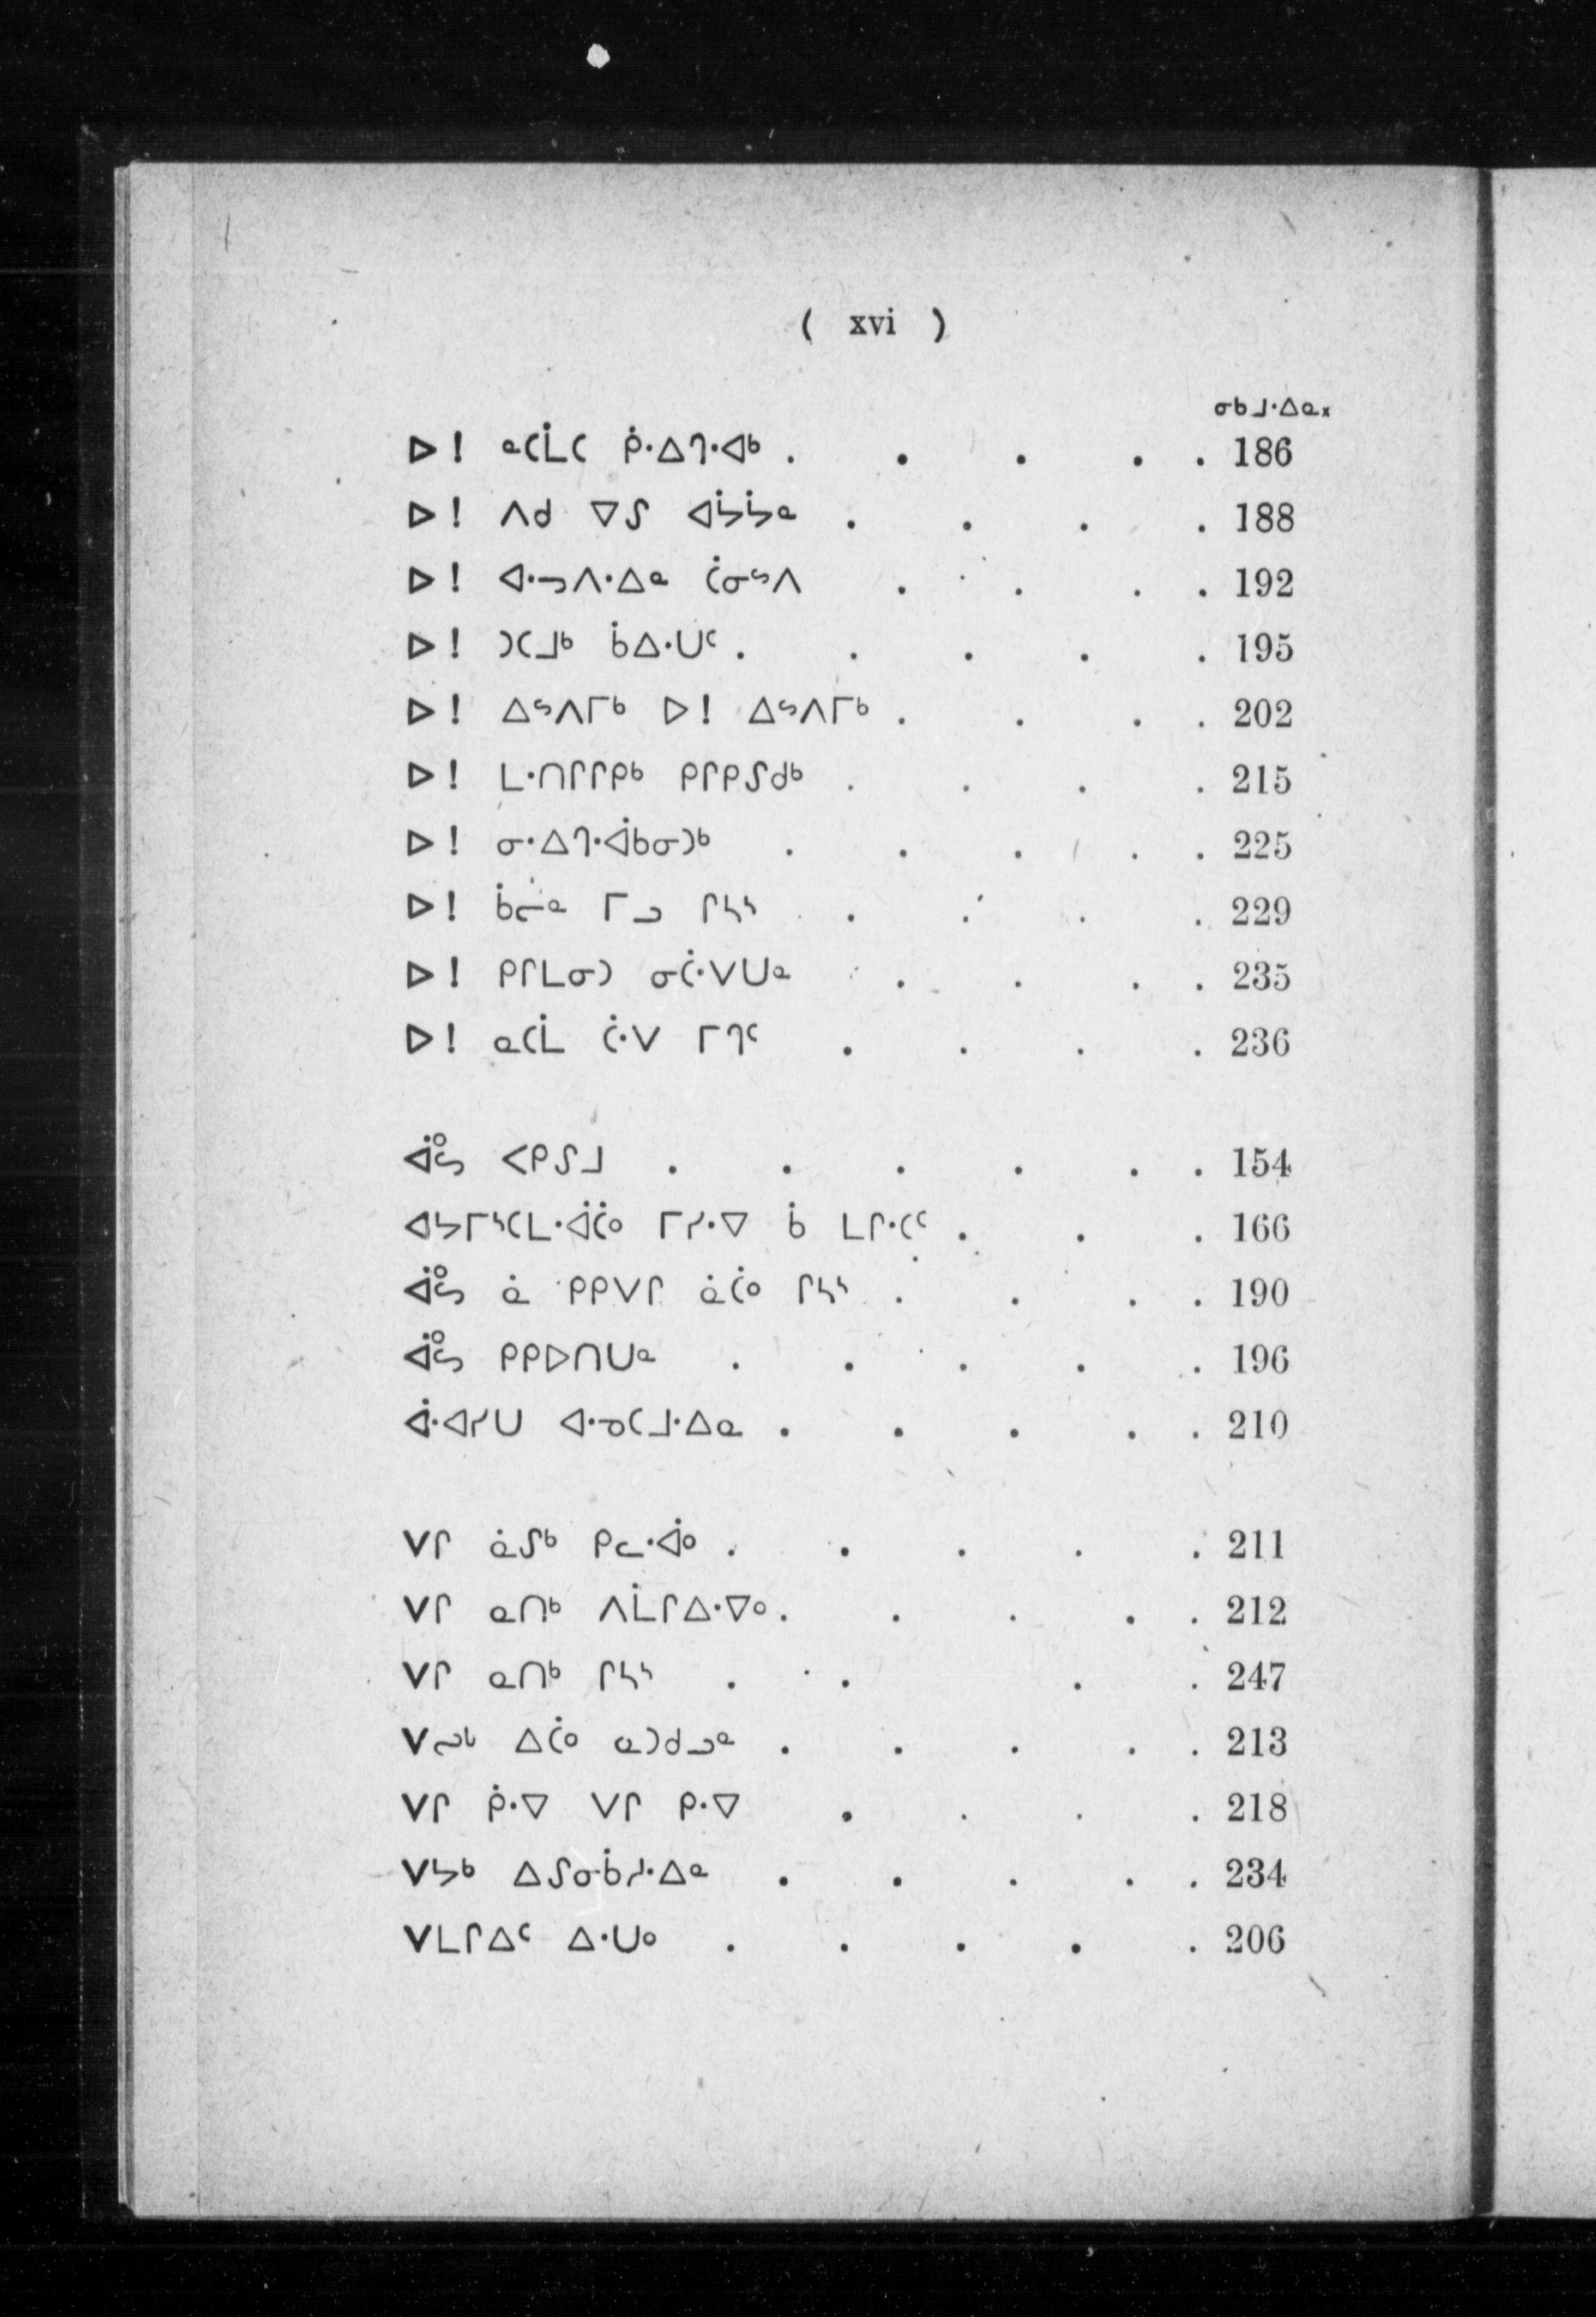 ( xvi )
ᓂᑲᒧᐧᐃᓇ᙮
ᐅ! ᓇᑕᒫᑕ ᑮᐧᐃᒉᐧᐊᒃ . . . . . 186
ᐅ! ᐱᑯ ᐁᔑ ᐊᔮᔮᓇ . . . . 188
ᐅ! ᐊᐧᓓᐱᐧᐃᓇ ᑖᓂᔅᐱ . . . . 192
ᐅ! ᑐᑕᒧᒃ ᑳᐃᐧᑌᑦ . . . . . 195
ᐅ! ᐃᔅᐱᒥᒃ ᐅ! ᐃᔅᐱᒥᒃ . . . . 202
ᐅ! ᒪᐧᑎᒋᒋᑭᒃ ᑭᒋᑭᔑᑯᒃ . . . . 215
ᐅ! ᓂᐧᐃᒉᐧᐋᑲᓂᑐᒃ . . . . . 225
ᐅ! ᑳᓕᓇ ᒥᓗ ᒋᓴᔅ . . . . 229
ᐅ! ᑭᒋᒪᓂᑐ ᓂᑖᐧᐯᑌᓇ . . . . 235
ᐅ! ᓇᑕᒫ ᑖᐧᐯ ᒥᒉᑦ . . . . 236
ᐋᐤᔕ ᐸᑭᔑᒧ . . . . . . 154
ᐊᔭᒥᔅᑕᒪᐧᐋᑖᐤ ᒥᓯᐧᐁ ᑳ ᒪᒋᐧᑕᑦ . . . 166
ᐋᐤᔕ ᓈ ᑭᑭᐯᒋ ᓈᑖᐤ ᒋᓴᔅ . . . . 190
ᐋᐤᔕ ᑭᑭᐅᑎᑌᓇ . . . . . 196
ᐋᐧᐊᓯᑌ ᐊᐧᓀᑕᒧᐧᐃᓇ . . . . . 210
ᐯᒋ ᓈᔑᒃ ᑭᓚᐧᐋᐤ . . . . . 211
ᐯᒋ ᓇᑎᒃ ᐱᒫᒋᐃᐧᐁᐤ . . . . . 212
ᐯᒋ ᓇᑎᒃ ᒋᓴᔅ . . . . . 247
ᐯᔓᒡ ᐃᑖᐤ ᓇᑐᑯᓗᓇ . . . . . 213
ᐯᒋ ᑮᐧᐁ ᐯᒋ ᑭᐧᐁ . . . . 218
ᐯᔭᒃ ᐃᔑᓂᑳᓱᐧᐃᓇ . . . . . 234
ᐯᒪᒋᐃᑦ ᐃᐧᑌᐤ . . . . . 206